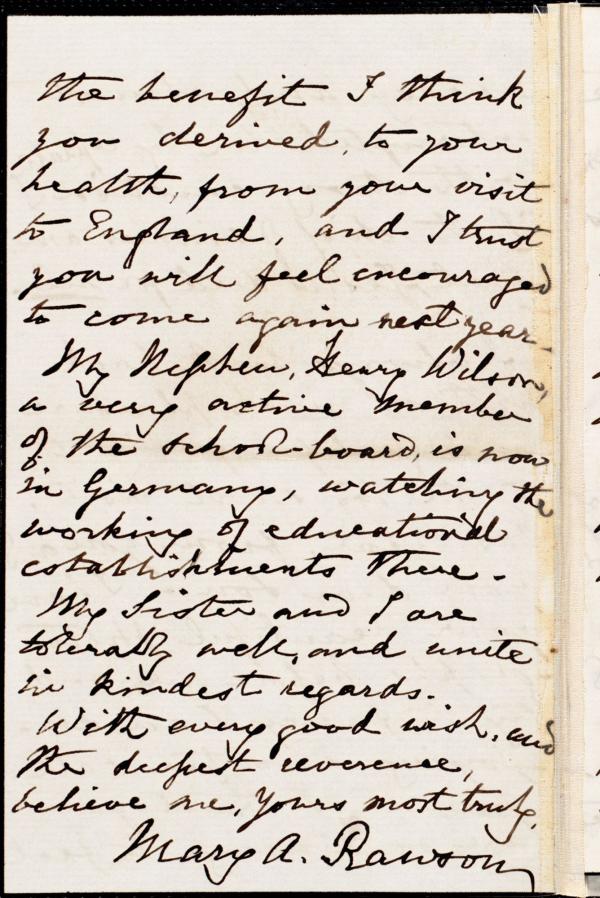 the benefit I think
you derived, to your
health, from your visit
to England, and I trust
you will feel encouraged
to come again next year.
My Nephew, Henry Wilson,
a very active member
of the school-board, is now
in Germany, watching the
working of educational
establishments there.
My Sister and I are
tolerably well, and unite
in kindest regards.
With every good wish, and
the deepest reverence,
believe me, Yours most truly,
Mary A. Rawson